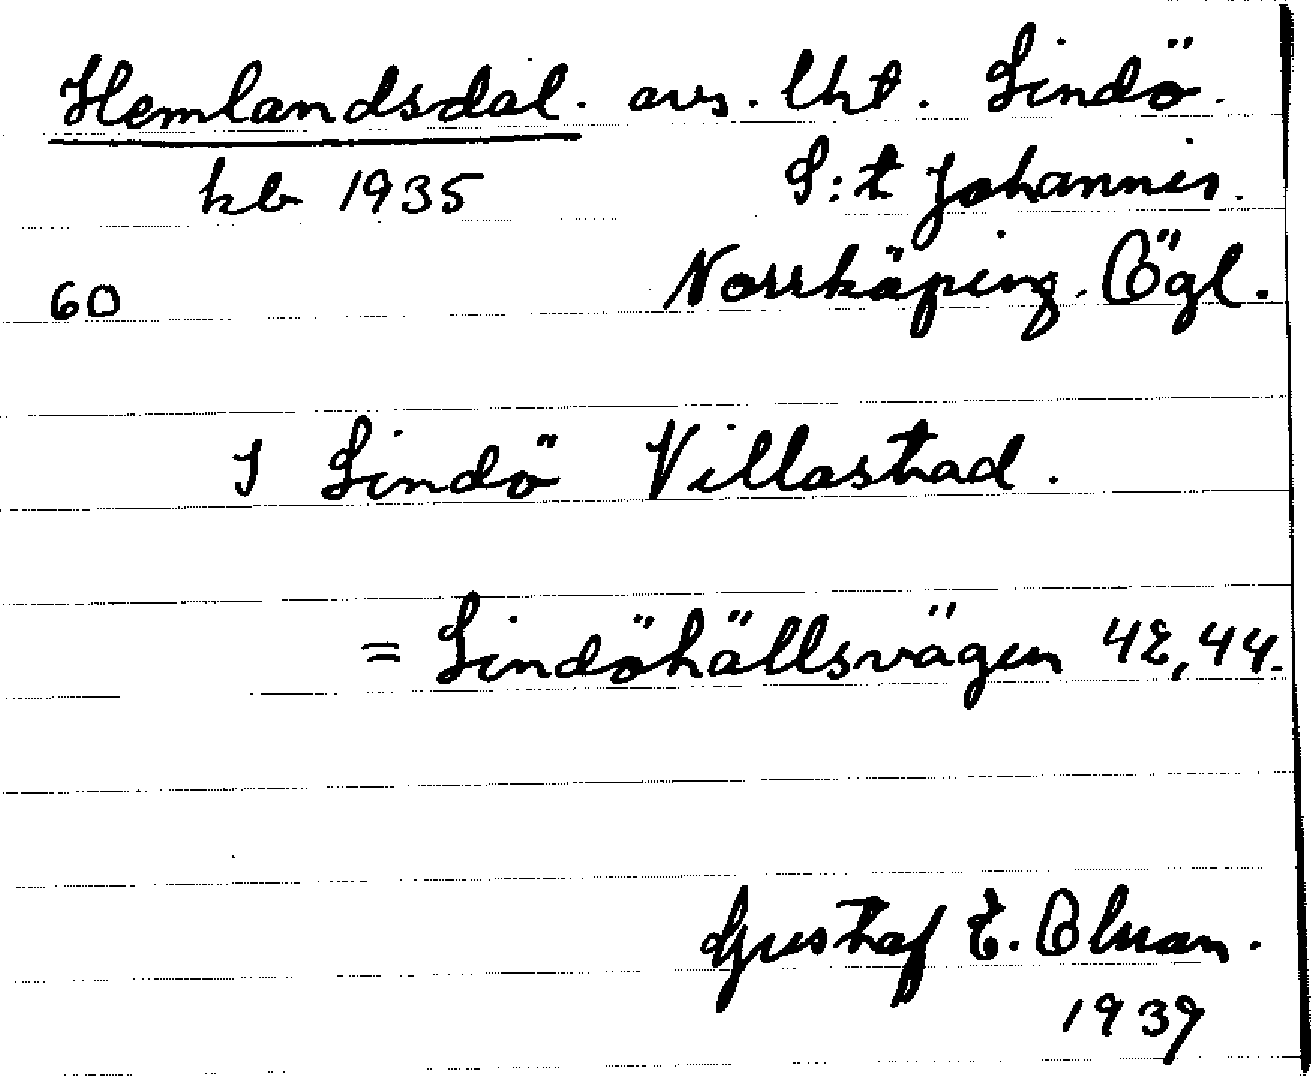 Hemlandsdal. avs. lht. Lindö.
kb 1935 S:t Johannis.
60 Norrköping. Ögl.
I Lindö Villastad.
= Lindöhällsvägen 42, 44.
Gustaf E. Olman.
1939